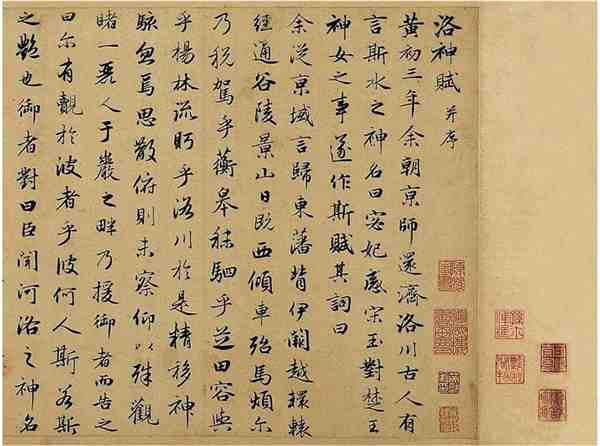 洛神賦 并序
黃初三年余朝京師還濟洛川古人有
言斯水之神名曰宓妃感宋玉對楚王
神女之事遂作斯賦其詞曰
余從京域言歸東藩背伊闕越轘轅
經通谷陵景山日既西傾車殆馬煩尓
乃稅駕乎蘅皋秣駟乎芝田容與
乎楊林流眄乎洛川於是精移神
駭忽焉思散俯則未察仰以殊觀
睹一麗人于巖之畔乃援御者而告之
曰尓有覿於彼者乎彼何人斯若斯
之豔也御者對曰臣聞河洛之神名